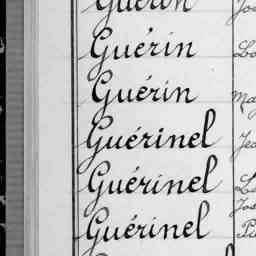 Guéron
Guérin
Guérin
Guérinel
Guérinel
Guérinel